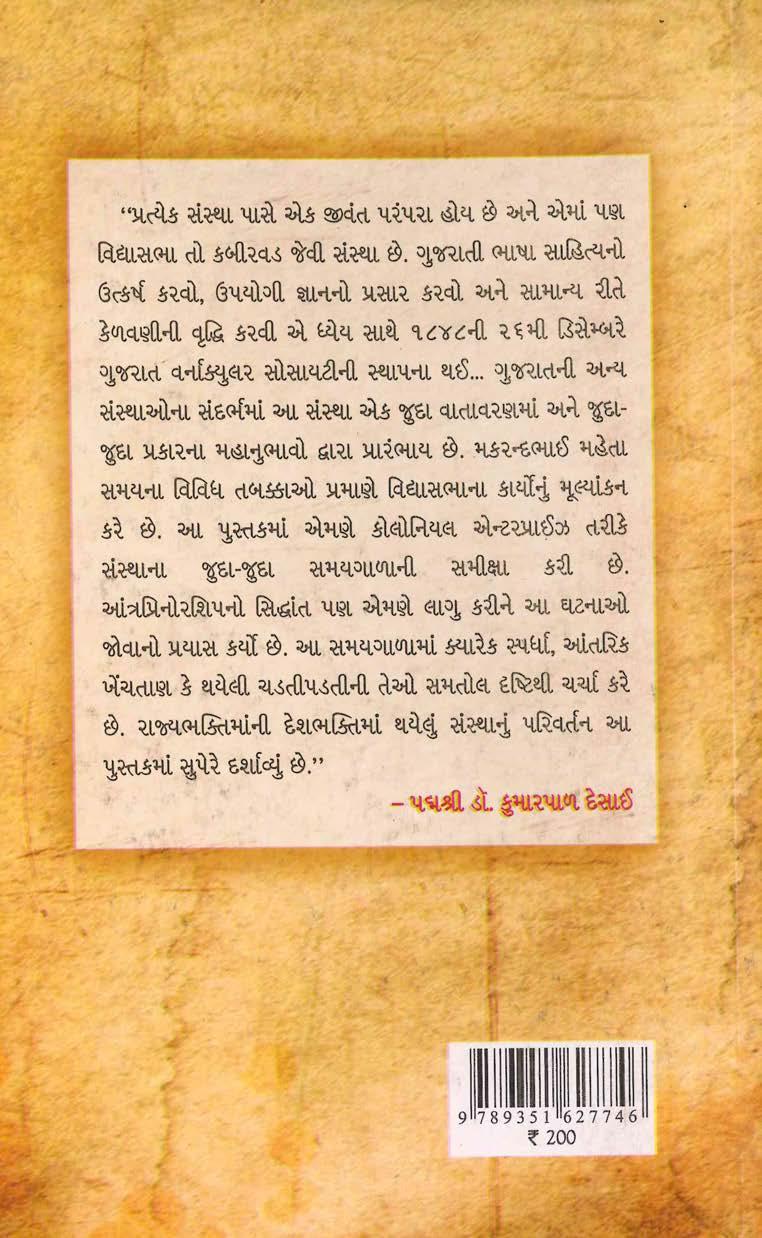 “પ્રત્યેક સંસ્થા પાસે એક જીવંત પરંપરા હોય છે અને એમાં પણ
વિદ્યાસભા તો કબીરવડ જેવી સંસ્થા છે. ગુજરાતી ભાષા સાહિત્યનો
ઉત્કર્ષ કરવો, ઉપયોગી જ્ઞાનનો પ્રસાર કરવો અને સામાન્ય રીતે
કેળવણીની વૃદ્ધિ કરવી એ ધ્યેય સાથે ૧૮૪૮ની ૨૬મી ડિસેમ્બરે
ગુજરાત વર્નાક્યુલર સોસાયટીની સ્થાપના થઈ... ગુજરાતની અન્ય
સંસ્થાઓના સંદર્ભમાં આ સંસ્થા એક જુદા વાતાવરણમાં અને જુદા-
જુદા પ્રકારના મહાનુભાવો દ્વારા પ્રારંભાય છે. મકરન્દભાઈ મહેતા
સમયના વિવિધ તબક્કાઓ પ્રમાણે વિદ્યાસભાના કાર્યોનું મૂલ્યાંકન
કરે છે. આ પુસ્તકમાં એમણે કોલોનિયલ એન્ટરપ્રાઈઝ તરીકે
સંસ્થાના જુદા-જુદા સમયગાળાની સમીક્ષા કરી છે.
આંત્રપ્રિનોરશિપનો સિદ્ધાંત પણ એમણે લાગુ કરીને આ ઘટનાઓ
જોવાનો પ્રયાસ કર્યો છે. આ સમયગાળામાં ક્યારેક સ્પર્ધા, આંતરિક
ખેંચતાણ કે થયેલી ચડતીપડતીની તેઓ સમતોલ દૃષ્ટિથી ચર્ચા કરે
છે. રાજ્યભક્તિમાંની દેશભક્તિમાં થયેલું સંસ્થાનું પરિવર્તન આ
પુસ્તકમાં સુપેરે દર્શાવ્યું છે.”
– પદ્મશ્રી ડૉ. કુમારપાળ દેસાઈ
9 789351 627746
₹ 200